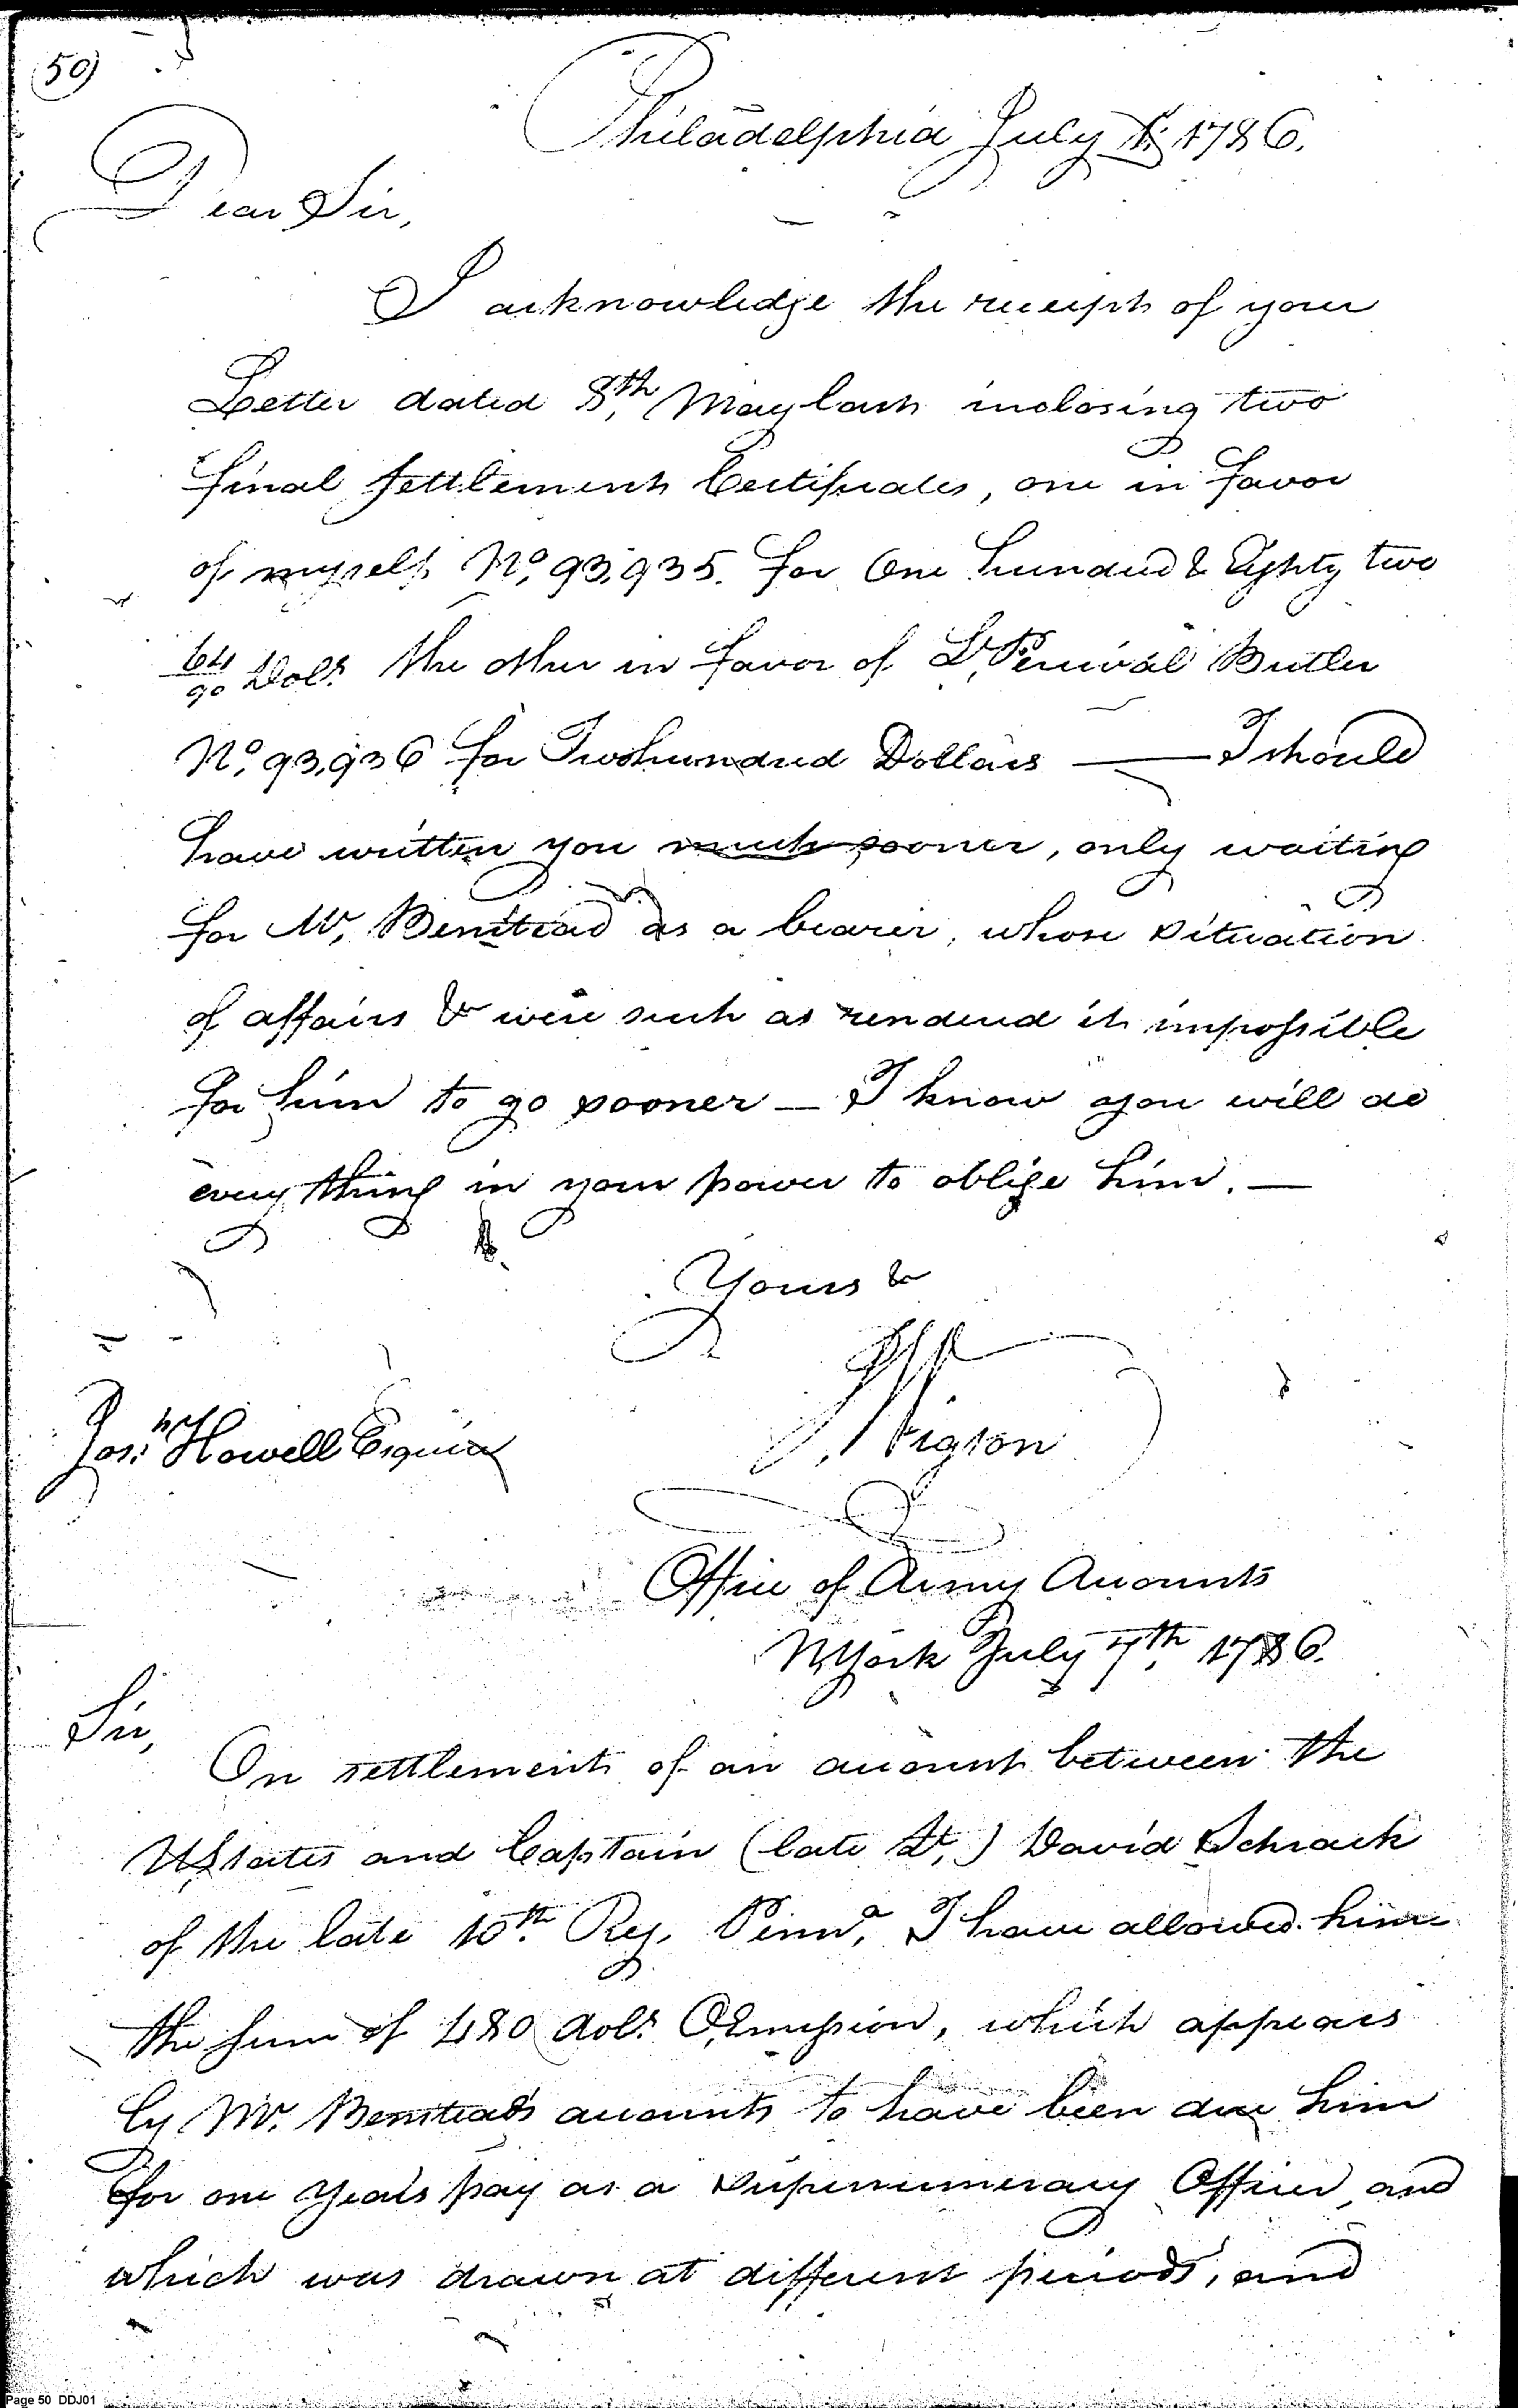 50)
Philadelphia July 1st 1786.
Dear Sir,
I acknowledge the receipt of your
Letter dated 8th, May last inclosing two
final settlement Certificates, one in favor
of myself No, 93,935. for One hundred & Eighty two
64/90 Dols the other in favor of Lt, Percival Butler
No, 93,936 for Two hundred Dollars — I should
have written you much sooner, only waiting
for Mr, Benstead as a bearer, whose situation
of affairs & were such as rendered it impossible
for him to go sooner — I know you will do
every thing in your power to oblige him. —
Yours &
Stigson
Jos: Howell Esquire
Office of Army Accounts
NYork July 7th, 1786.
Sir,
On settlement of an account between the
UStates and Captain (late Lt,) David Schrack
of the late 10th. Reg. Penna, I have allowed him
the sum of 480 dols O,Emission, which appears
by Mr. Benstead's accounts to have been due him
for one Years pay as a Supernumerary Officer, and
which was drawn at different periods, and
Page 50 DDJ01